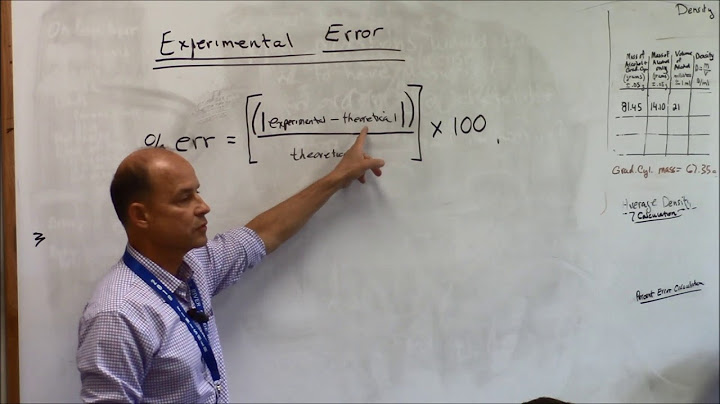 Experimental Error
% err = [(|experimental - theoretical|) / theoretica] × 100
Density
Mass of Alcohol + Grad. Cyl. (grams) ± .05g
Mass of Alcohol only (grams) ± .05g
Volume of Alcohol ± 1 ml
Density D = m/V
81.45 14.10 21
Grad. Cyl. mass = 67.35
Average Density
Calculation
Percent Error Calculation